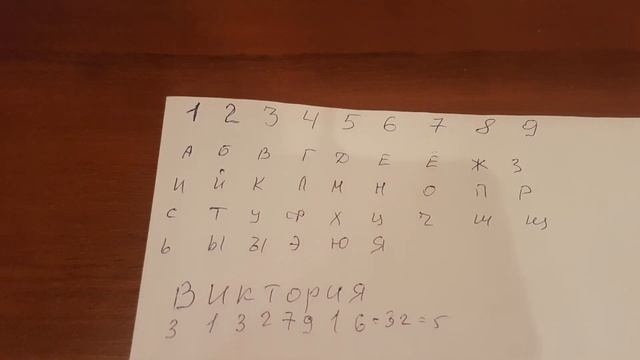 1 2 3 4 5 6 7 8 9
А Б В Г Д Е Ё Ж З
И Й К Л М Н О П Р
С Т У Ф Х Ц Ч Ш Щ
Ь Ы Ы Э Ю Я
ВИКТОРИЯ
3 1 3 2 7 9 1 6 = 32 = 5